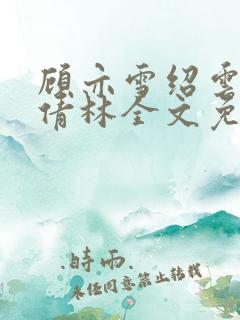 顾亦雪绍雲
倩林全文免
.時雨.
未经同意禁止转载